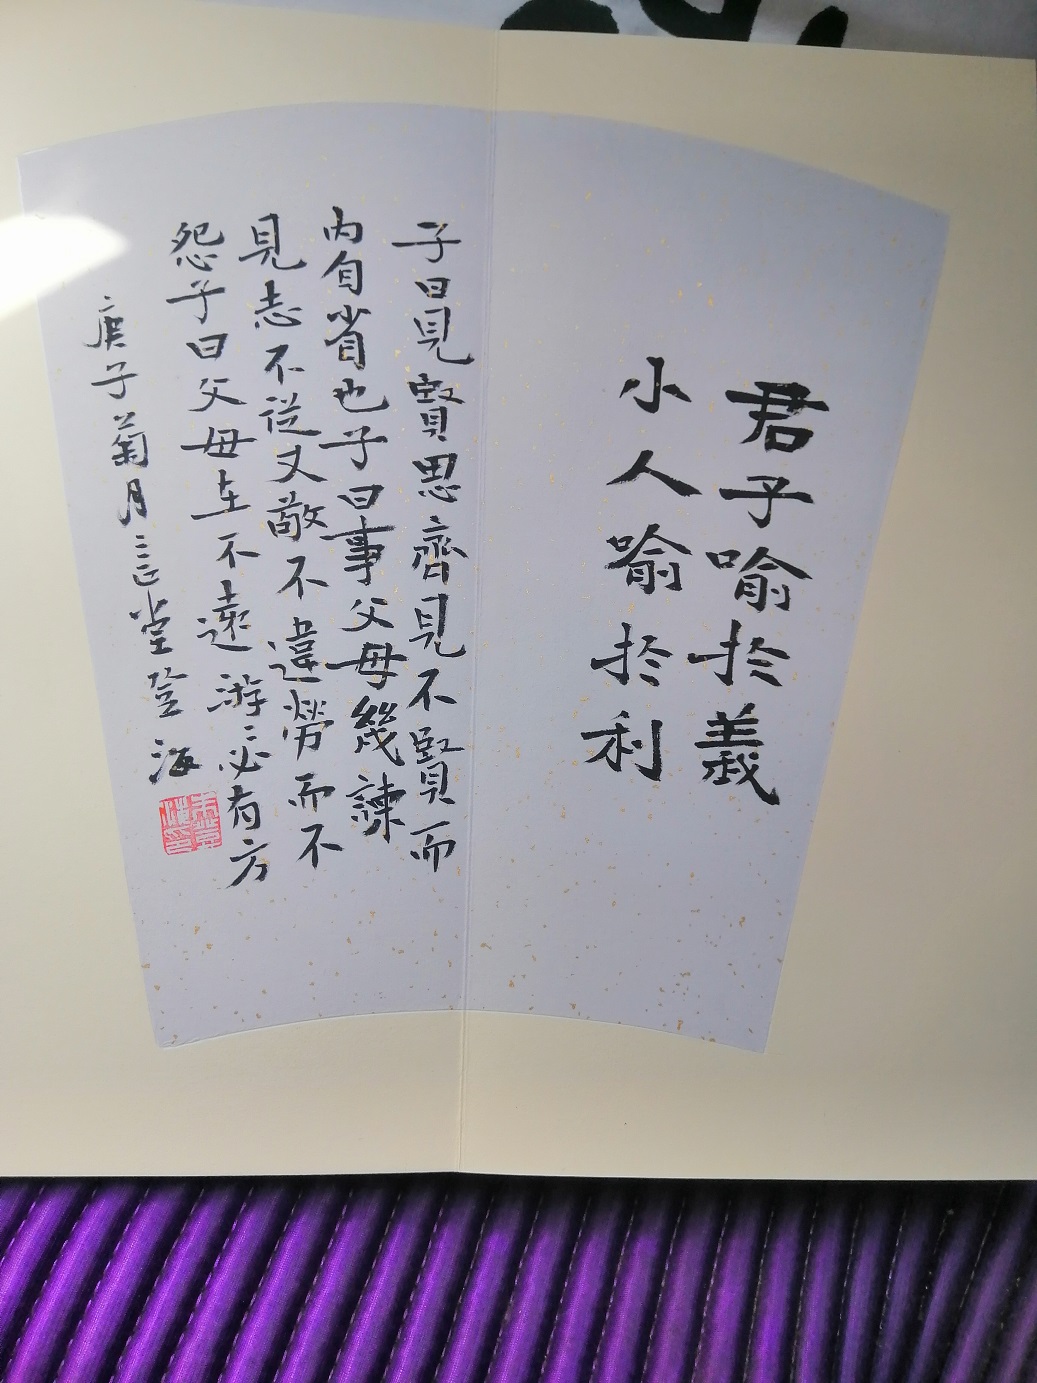 君子喻於義
小人喻於利
子曰見賢思齊見不賢而
內自省也子曰事父母幾諫
見志不從又敬不違勞而不
怨子曰父母在不遠游游必有方
庚子菊月三正堂登海